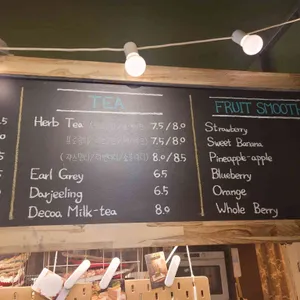 TEA
Herb Tea 7.5 / 8.0
7.5 / 8.0
8.0 / 8.5
Earl Grey 6.5
Darjeeling 6.5
Decoa Milk-tea 8.0
FRUIT SMOOTH
Strawberry
Sweet Banana
Pineapple-apple
Blueberry
Orange
Whole Berry